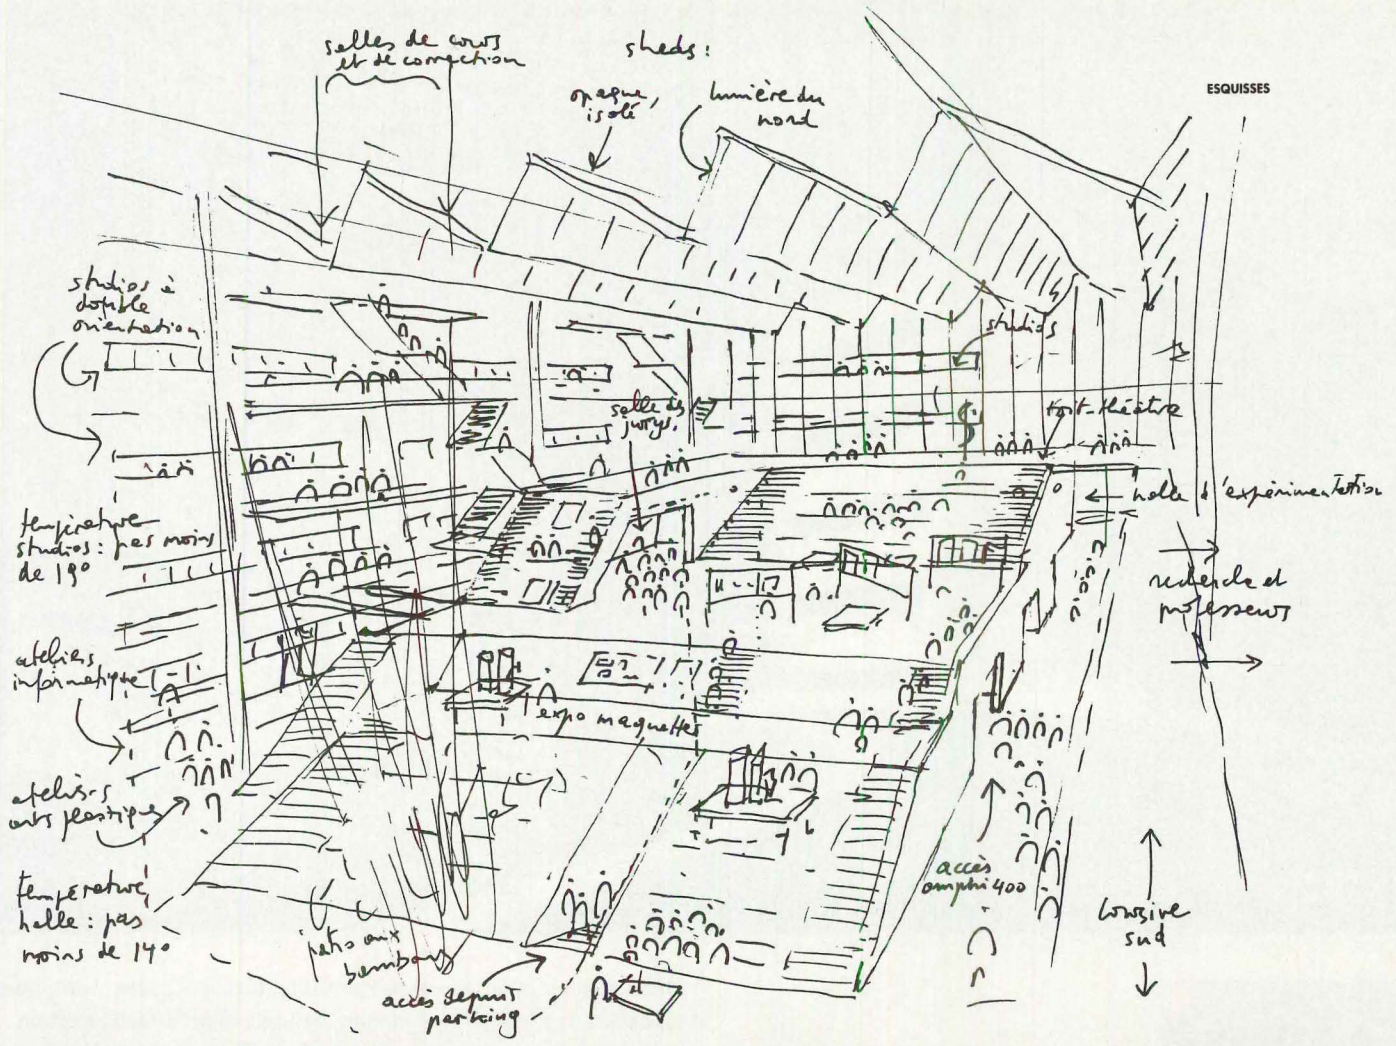 salles de cours
et de correction
sheds :
opaque,
isolé
lumière du
nord
ESQUISSES
studios à
double
orientation
studios
salle des
jurys.
toit-théâtre
halle d'expérimentation
température
studios : pas moins
de 19°
recherche et
professeurs
ateliers
informatique
expo maquettes
ateliers
arts plastiques
accès
amphi 400
température,
halle : pas
moins de 14°
coursive
sud
patio aux
bambous
accès depuis
parking